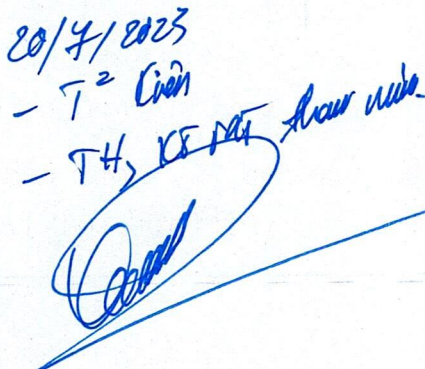 20/7/2023
- T² Kiên
- TH, KT tham mưu